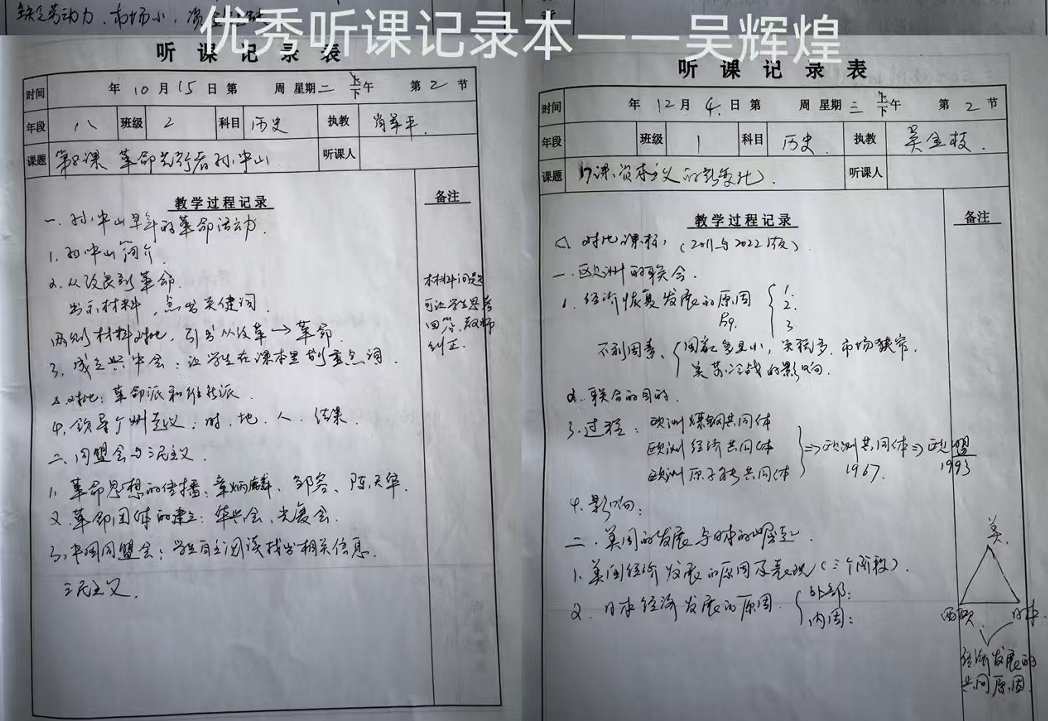 缺乏劳动力、市场小、资金
优秀听课记录本——吴辉煌
听课记录表
时间 年 10月15日 第 周 星期二 上下午 第2节
年段 八 班级 2 科目 历史 执教 肖羊平
课题 第8课 革命先行者孙中山 听课人
教学过程记录 备注
一. 孙中山早年的革命活动.
1. 孙中山简介
2. 从改良到革命.
出示材料, 点出关键词.
两则材料对比, 引出从改革→革命.
3. 成立兴中会: 让学生在课本里划重点词.
对比: 革命派和维新派.
4. 领导广州起义: 时、地、人、结果.
二. 同盟会与三民主义.
1. 革命思想的传播: 章炳麟、邹容、陈天华.
2. 革命团体的建立: 华兴会、光复会.
3. 中国同盟会: 学生自主阅读找出相关信息.
三民主义.
材料问题
可让学生思考
回答, 教师
纠正.
听课记录表
时间 年 12月4日 第 周 星期三 上下午 第2节
年段 班级 1 科目 历史. 执教 吴金枝.
课题 17课. 资本主义的新变化. 听课人
教学过程记录 备注
对比课标, (2011与2022版).
一. 欧洲的联合.
1. 经济恢复发展的原因 1. 2. 3
不利因素: 国家多且小, 关税多. 市场狭窄,
美苏冷战的影响.
2. 联合的目的.
3. 过程: 欧洲煤钢共同体
欧洲经济共同体
欧洲原子能共同体
⇒欧洲共同体⇒欧盟
1967. 1993
4. 影响:
二. 美国的发展与日本的崛起.
1. 美国经济发展的原因及表现 (三个阶段).
2. 日本经济发展的原因. 外部: 内因:
美.
西欧. 日本.
经济发展的
共同原因.